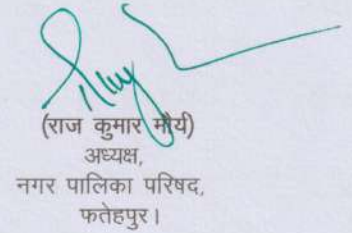 (राज कुमार मौर्य)
अध्यक्ष,
नगर पालिका परिषद,
फतेहपुर।